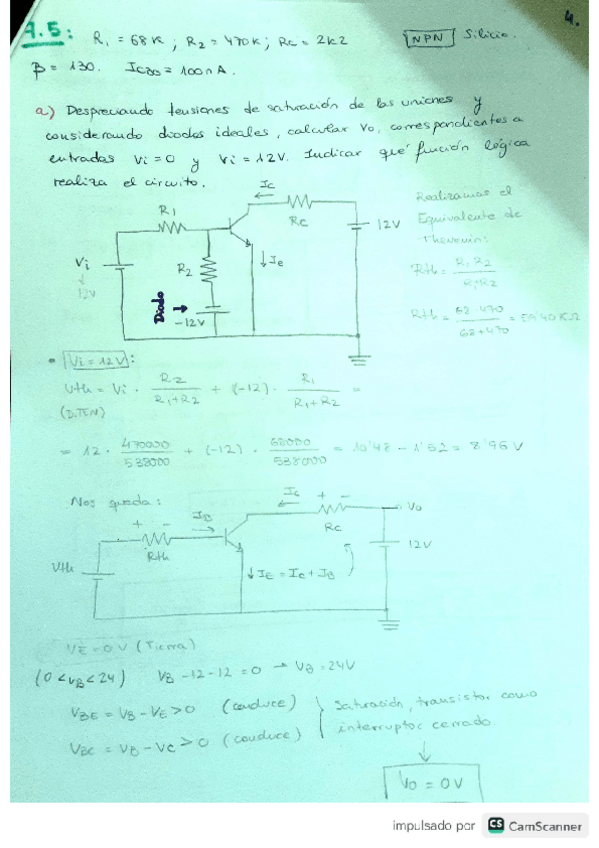 4.
7.5: R1 = 68K ; R2 = 470K ; Rc = 2k2 NPN Silicio.
β = 130. ICBO = 100nA.
a) Despreciando tensiones de saturación de las uniones y
considerando diodos ideales, calcular Vo, correspondientes a
entradas Vi = 0 y Vi = 12V. Indicar qué función lógica
realiza el circuito.
Ic
R1
Rc
12V
Vi
12V
R2
↓Ie
Diodo →
-12V
Realizamos el
Equivalente de
Thevenin:
Rth = R1 R2 / R1+R2
Rth = 68 470 / 68+470 = 59'40 KΩ
• Vi = 12V :
Vth = Vi · R2 / R1+R2 + (-12) · R1 / R1+R2 =
= 12 · 470000 / 538000 + (-12) · 68000 / 538000 = 10'48 - 1'52 = 8'96 V
Nos queda:
Ic + -
Vo
+ - IB
Rth
Rc
Vth
↓IE = Ic + IB
12V
VE = 0V (Tierra)
(0 < VB < 24) VB - 12 - 12 = 0 → VB = 24V
VBE = VB - VE > 0 (conduce)
VBC = VB - VC > 0 (conduce)
Saturación, transistor como
interruptor cerrado
↓
Vo = 0V
impulsado por CS CamScanner